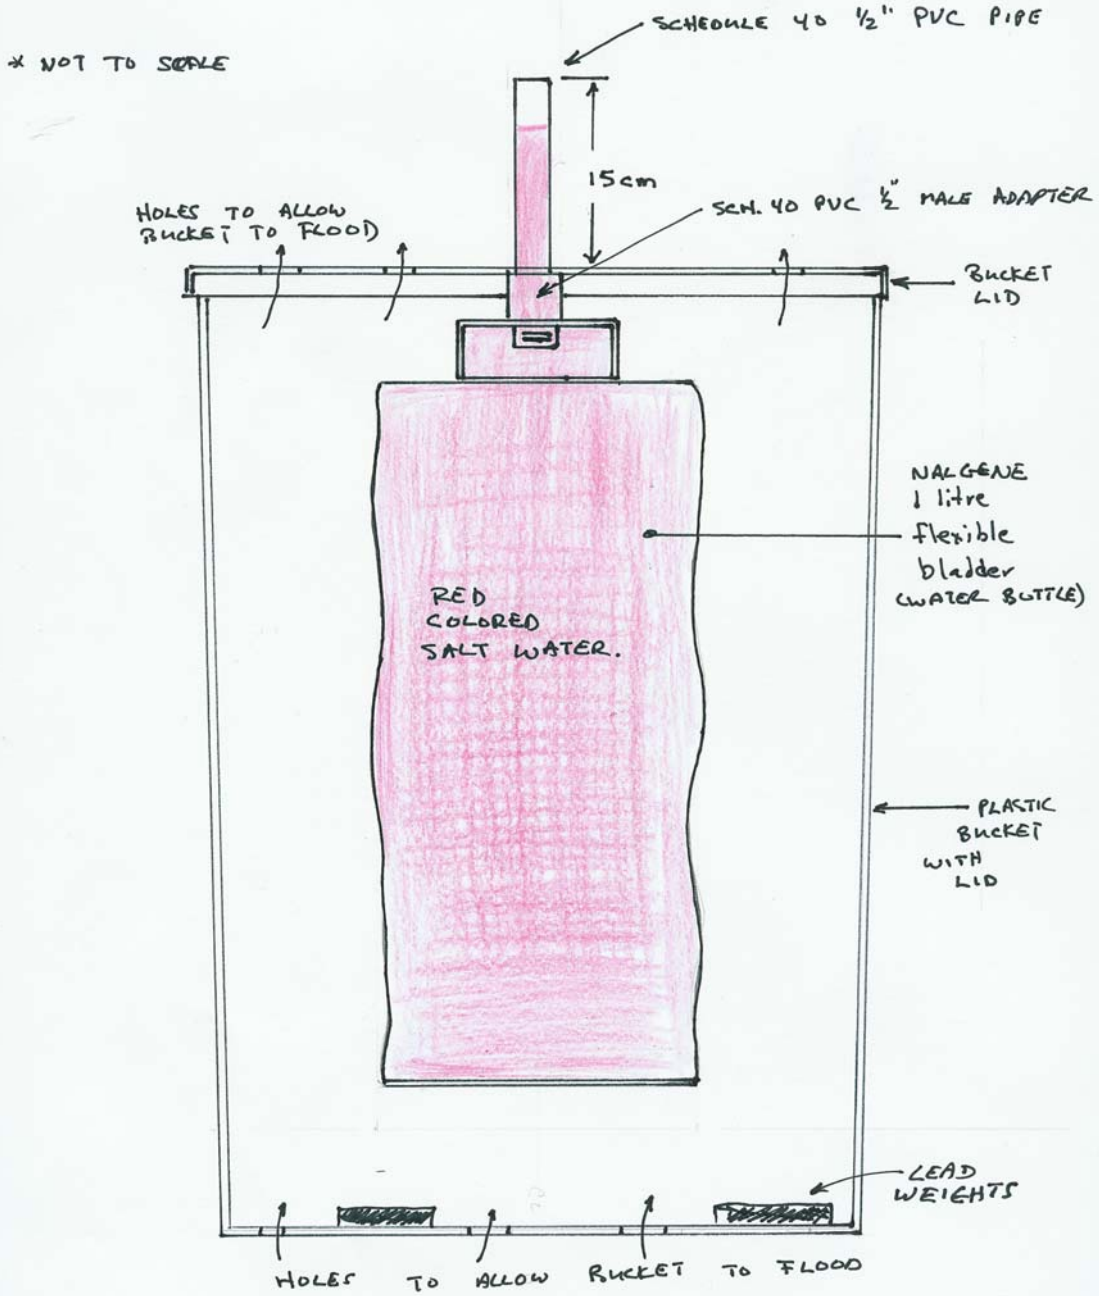 SCHEDULE 40 1/2" PVC PIPE
* NOT TO SCALE
15cm
SCH. 40 PVC 1/2" MALE ADAPTER
HOLES TO ALLOW
BUCKET TO FLOOD
BUCKET
LID
NALGENE
1 litre
flexible
bladder
(WATER BOTTLE)
RED
COLORED
SALT WATER.
PLASTIC
BUCKET
WITH
LID
LEAD
WEIGHTS
HOLES TO ALLOW BUCKET TO FLOOD